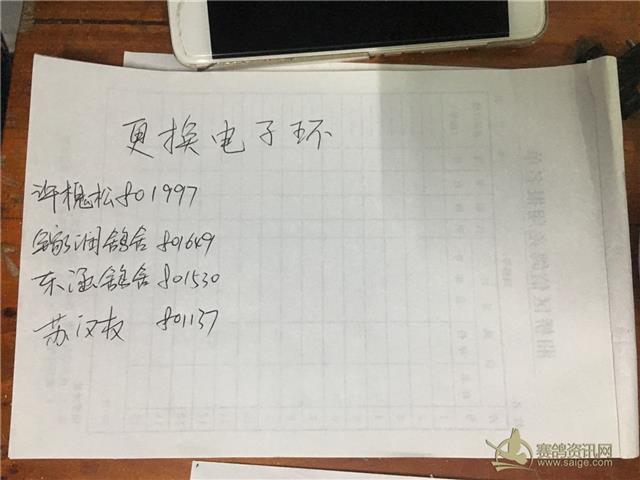 更换电子环
许槐松801997
润鸽舍801649
东涵鸽舍801530
苏汉权 801137
赛鸽资讯网
www.saige.com